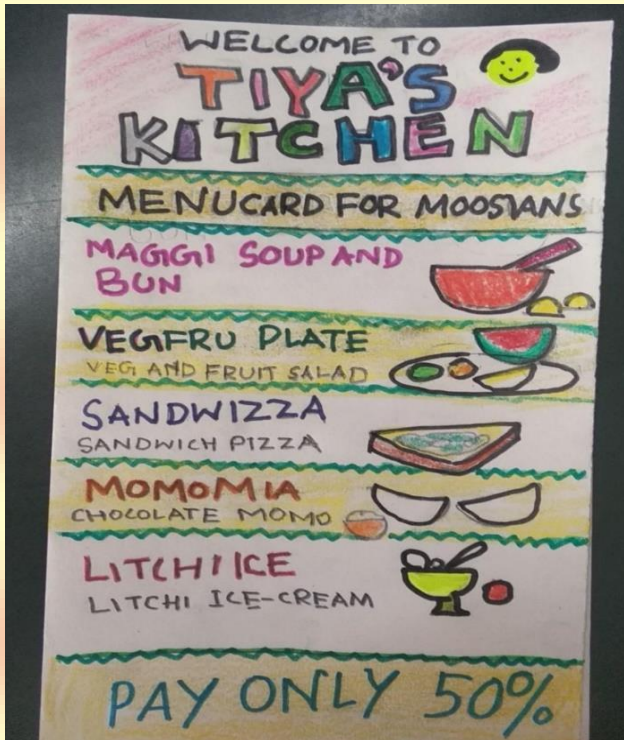 WELCOME TO
TIYA'S
KITCHEN
MENUCARD FOR MOOSIANS
MAGGI SOUP AND
BUN
VEGFRU PLATE
VEG AND FRUIT SALAD
SANDWIZZA
SANDWICH PIZZA
MOMOMIA
CHOCOLATE MOMO
LITCHI ICE
LITCHI ICE-CREAM
PAY ONLY 50%